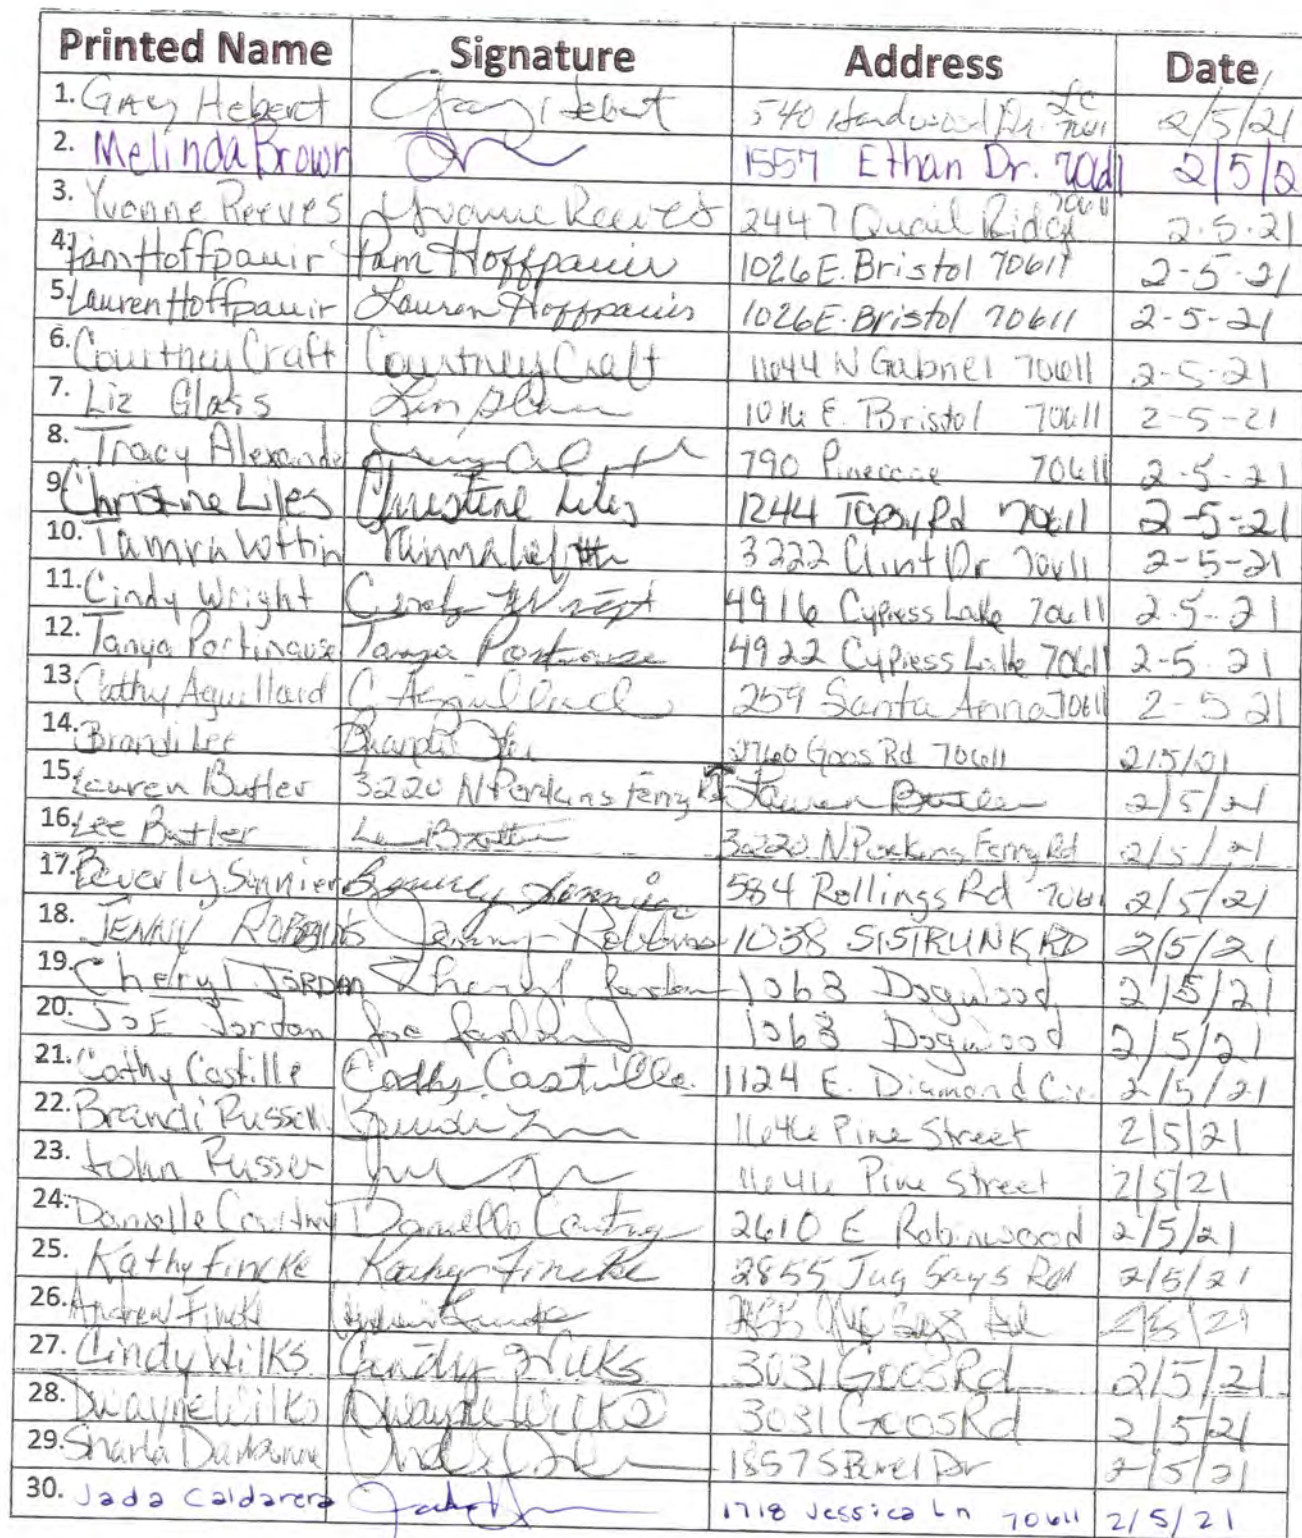 Printed Name Signature Address Date
1. Gay Hebert Gay Hebert 540 Hardwood Dr. LC 70611 2/5/21
2. Melinda Brown 1557 Ethan Dr. 70611 2/5/2
3. Yvonne Reeves Yvonne Reeves 2447 Quail Ridge 70611 2-5-21
4. Pam Hoffpauir Pam Hoffpauir 1026 E. Bristol 70611 2-5-21
5. Lauren Hoffpauir Lauren Hoffpauir 1026 E. Bristol 70611 2-5-21
6. Courtney Craft Courtney Craft 1644 N Gabriel 70611 2-5-21
7. Liz Glass 1016 E. Bristol 70611 2-5-21
8. Tracy Alexande 790 Pinecone 70611 2-5-21
9. Christine Liles Christine Liles 1244 Topsy Rd 70611 2-5-21
10. 3222 Clint Dr 70611 2-5-21
11. Cindy Wright Cindy Wright 4916 Cypress Lake 70611 2-5-21
12. Tanya 4922 Cypress Lake 70611 2-5-21
13. Cathy Aguillard C Aguillard 259 Santa Anna 70611 2-5-21
14. Brandi Lee Brandi Lee Goos Rd 70611 2/5/21
15. Lauren Butler 3220 N Perkins Ferry Rd Lauren Butler 2/5/21
16. Lee Butler 3220 N Perkins Ferry Rd 2/5/21
17. Beverly Sonnier Beverly Sonnier 584 Rollings Rd 7061 2/5/21
18. JENNY ROBBINS Jenny Robbins 1038 SISTRUNK RD 2/5/21
19. Cheryl JORDAN Cheryl Jordan 1063 Dogwood 2/5/21
20. JOE Jordan Joe Jordan 1063 Dogwood 2/5/21
21. Cathy Castille Cathy Castille 1124 E. Diamond Cir. 2/5/21
22. Brandi Russell 1646 Pine Street 2/5/21
23. John 1646 Pine Street 2/5/21
24. Danielle 2610 E Robinwood 2/5/21
25. Kathy Fincke Kathy Fincke 2855 Jug Says Rd 2/5/21
26. Andrew 2/5/21
27. Cindy Wilks Cindy Wilks 3031 Goos Rd 2/5/21
28. Dwayne Wilks Dwayne Wilks 3031 Goos Rd 2/5/21
29. Sharla 2/5/21
30. Jada Caldarera 1718 Jessica Ln 70611 2/5/21